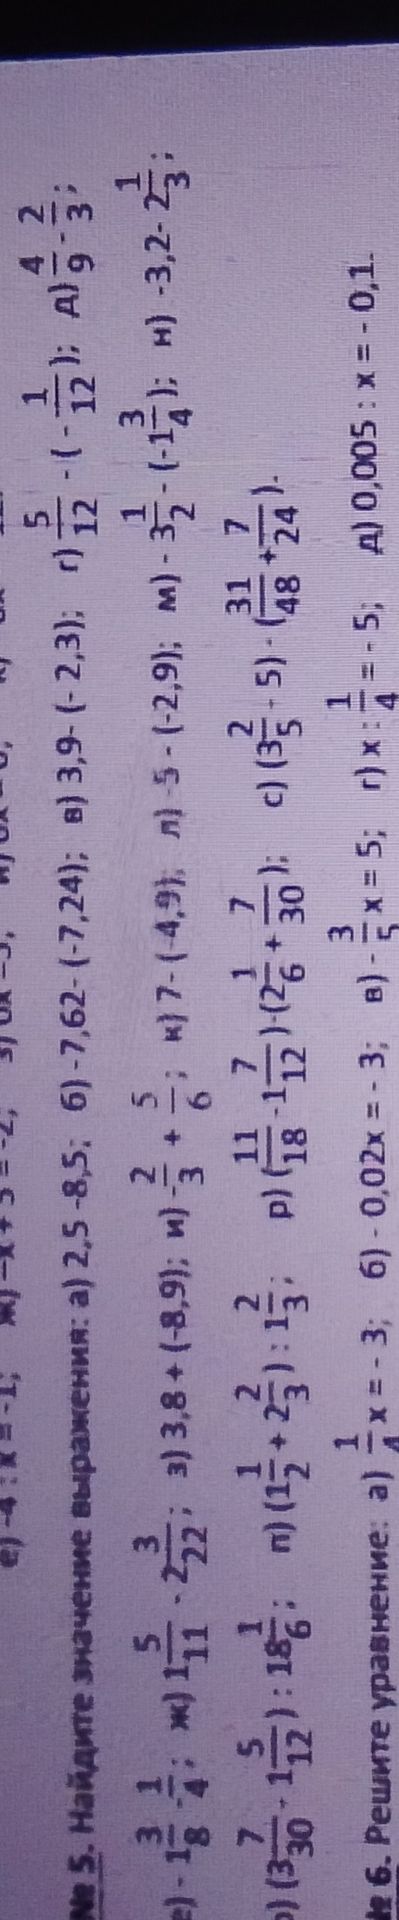 е) -4 : x = -1; ж) -x + 5 = -2;
№ 5. Найдите значение выражения: а) 2,5 -8,5; б) -7,62- (-7,24); в) 3,9- (- 2,3); г) 5/12 - (- 1/12); д) 4/9 - 2/3;
е) - 1 3/8 - 1/4; ж) 1 5/11 - 2 3/22; з) 3,8 + (-8,9); и) - 2/3 + 5/6; к) 7 - (-4,9); л) -5 - (-2,9); м) - 3 1/2 - (-1 3/4); н) -3,2- 2 1/3;
о) (3 7/30 - 1 5/12) : 18 1/6; п) (1 1/2 + 2 2/3) : 1 2/3; р) (11/18 - 1 7/12) · (2 1/6 + 7/30); с) (3 2/5 - 5) · (31/48 + 7/24).
№ 6. Решите уравнение: а) 1/4 x = - 3; б) - 0,02x = - 3; в) - 3/5 x = 5; г) x : 1/4 = - 5; д) 0,005 : x = - 0,1.